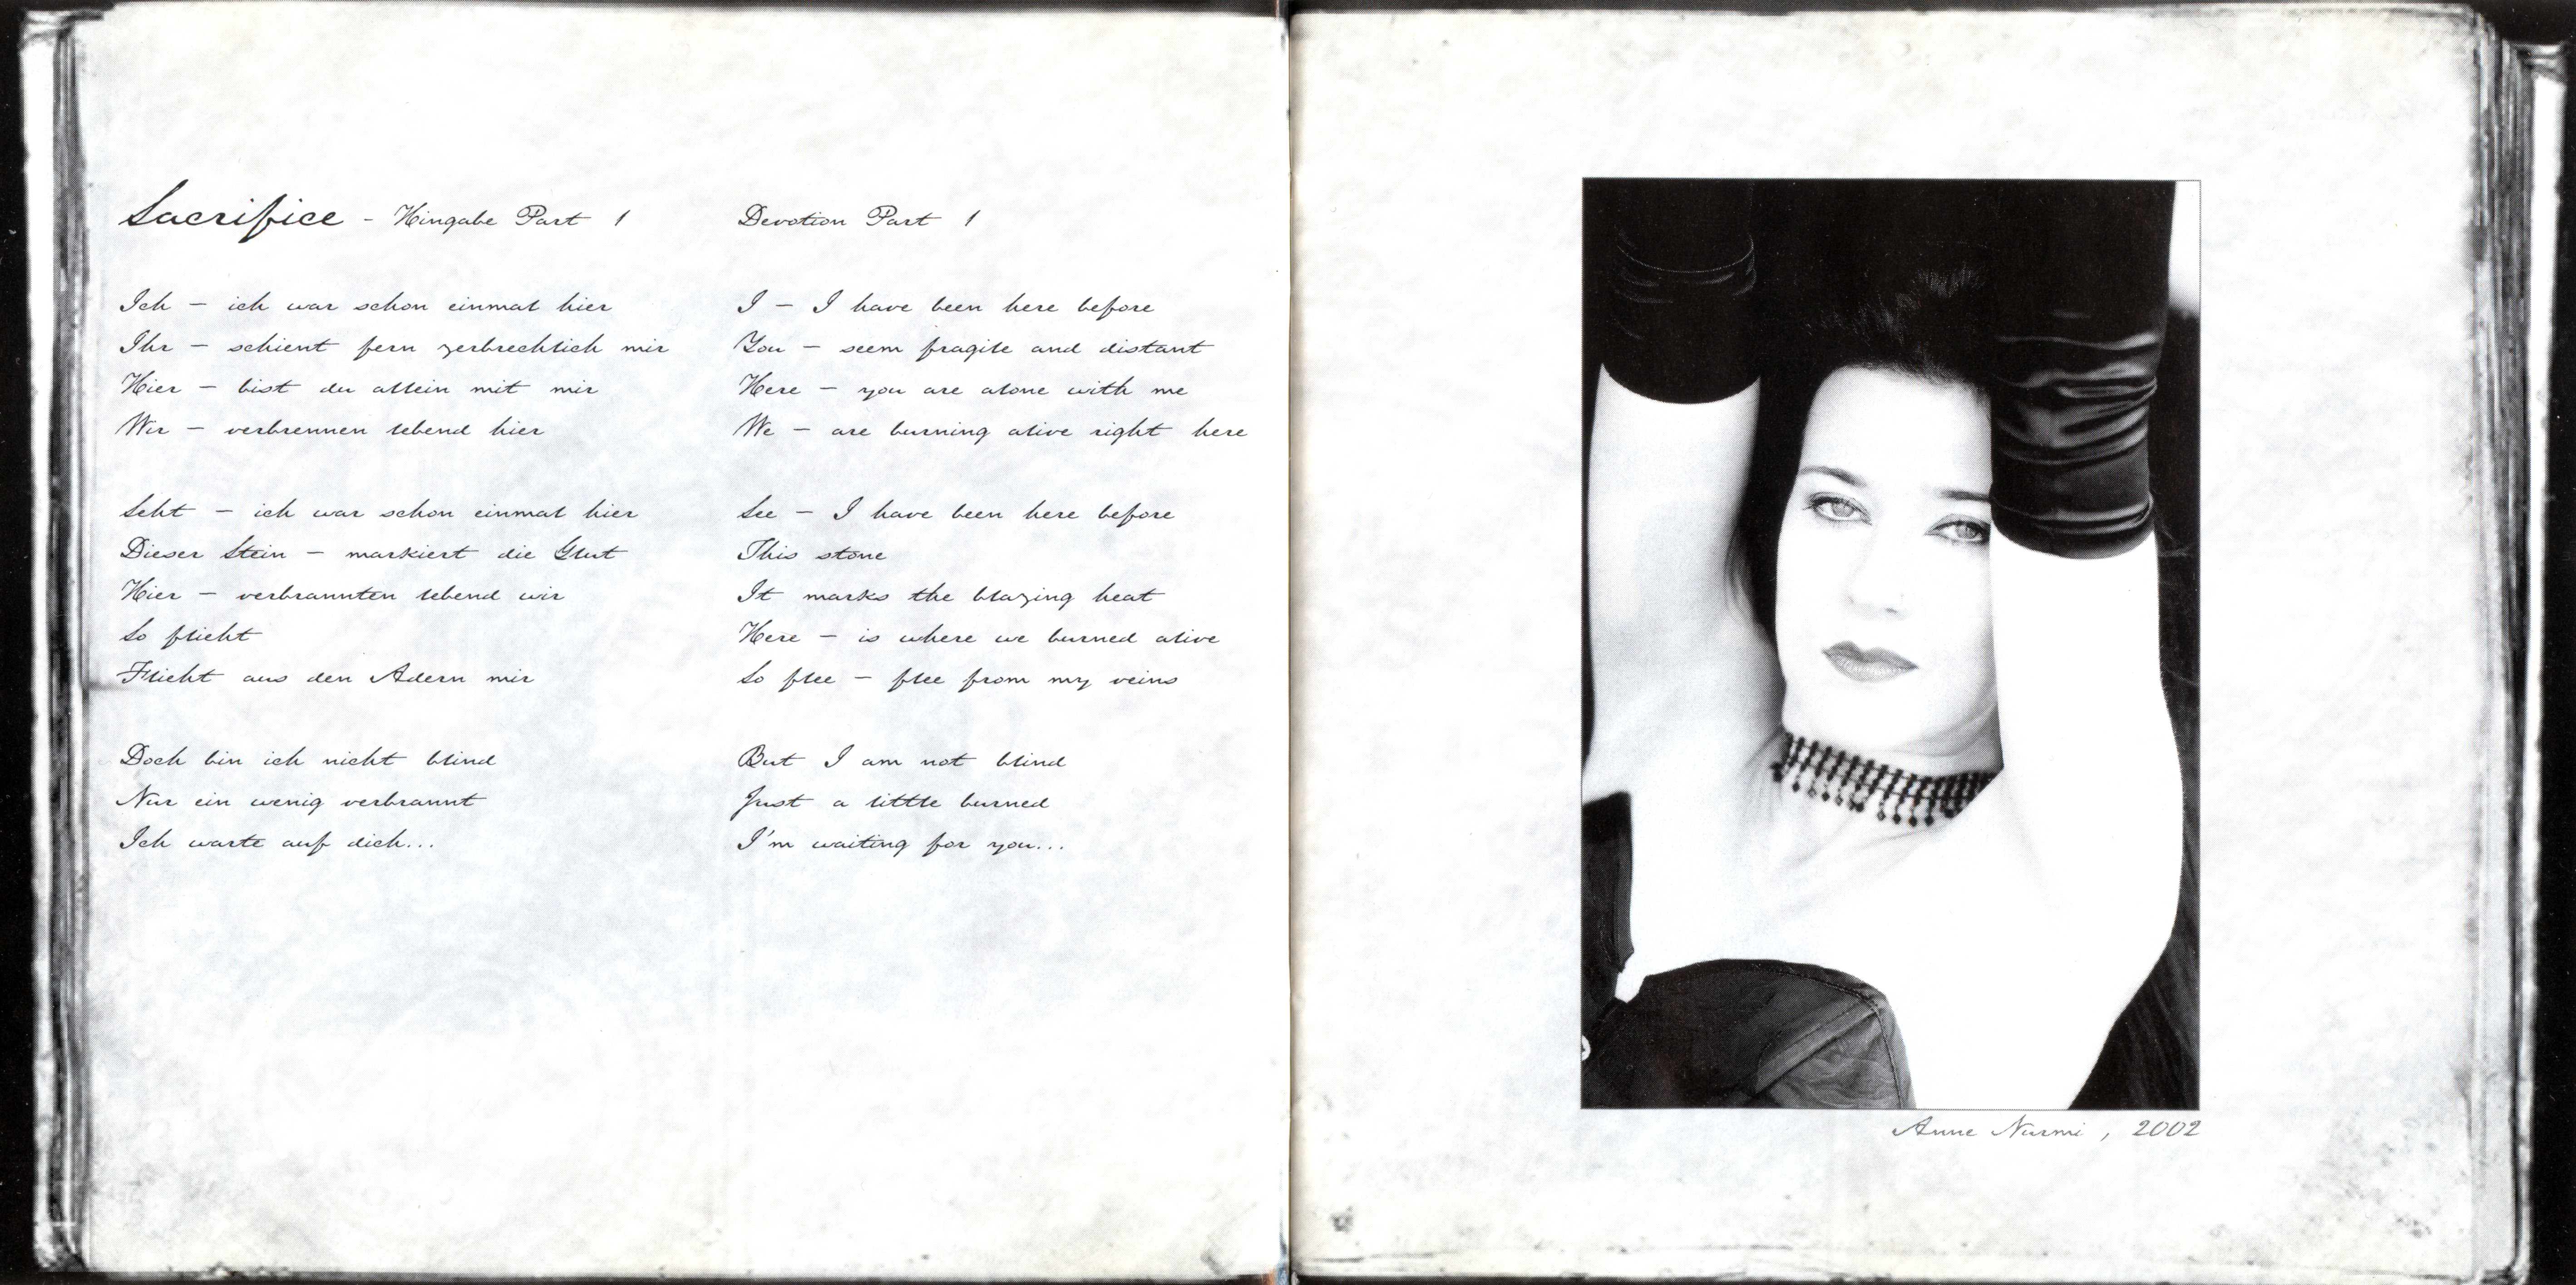 Sacrifice - Hingabe Part 1
Ich – ich war schon einmal hier
Ihr – schient fern zerbrechlich mir
Hier – bist du allein mit mir
Wir – verbrennen lebend hier
Seht – ich war schon einmal hier
Dieser Stein – markiert die Glut
Hier – verbrannten lebend wir
So flieht
Flieht aus den Adern mir
Doch bin ich nicht blind
Nur ein wenig verbrannt
Ich warte auf dich...
Devotion Part 1
I – I have been here before
You – seem fragile and distant
Here – you are alone with me
We – are burning alive right here
See – I have been here before
This stone
It marks the blazing heat
Here – is where we burned alive
So flee – flee from my veins
But I am not blind
Just a little burned
I'm waiting for you...
Anne Nurmi, 2002